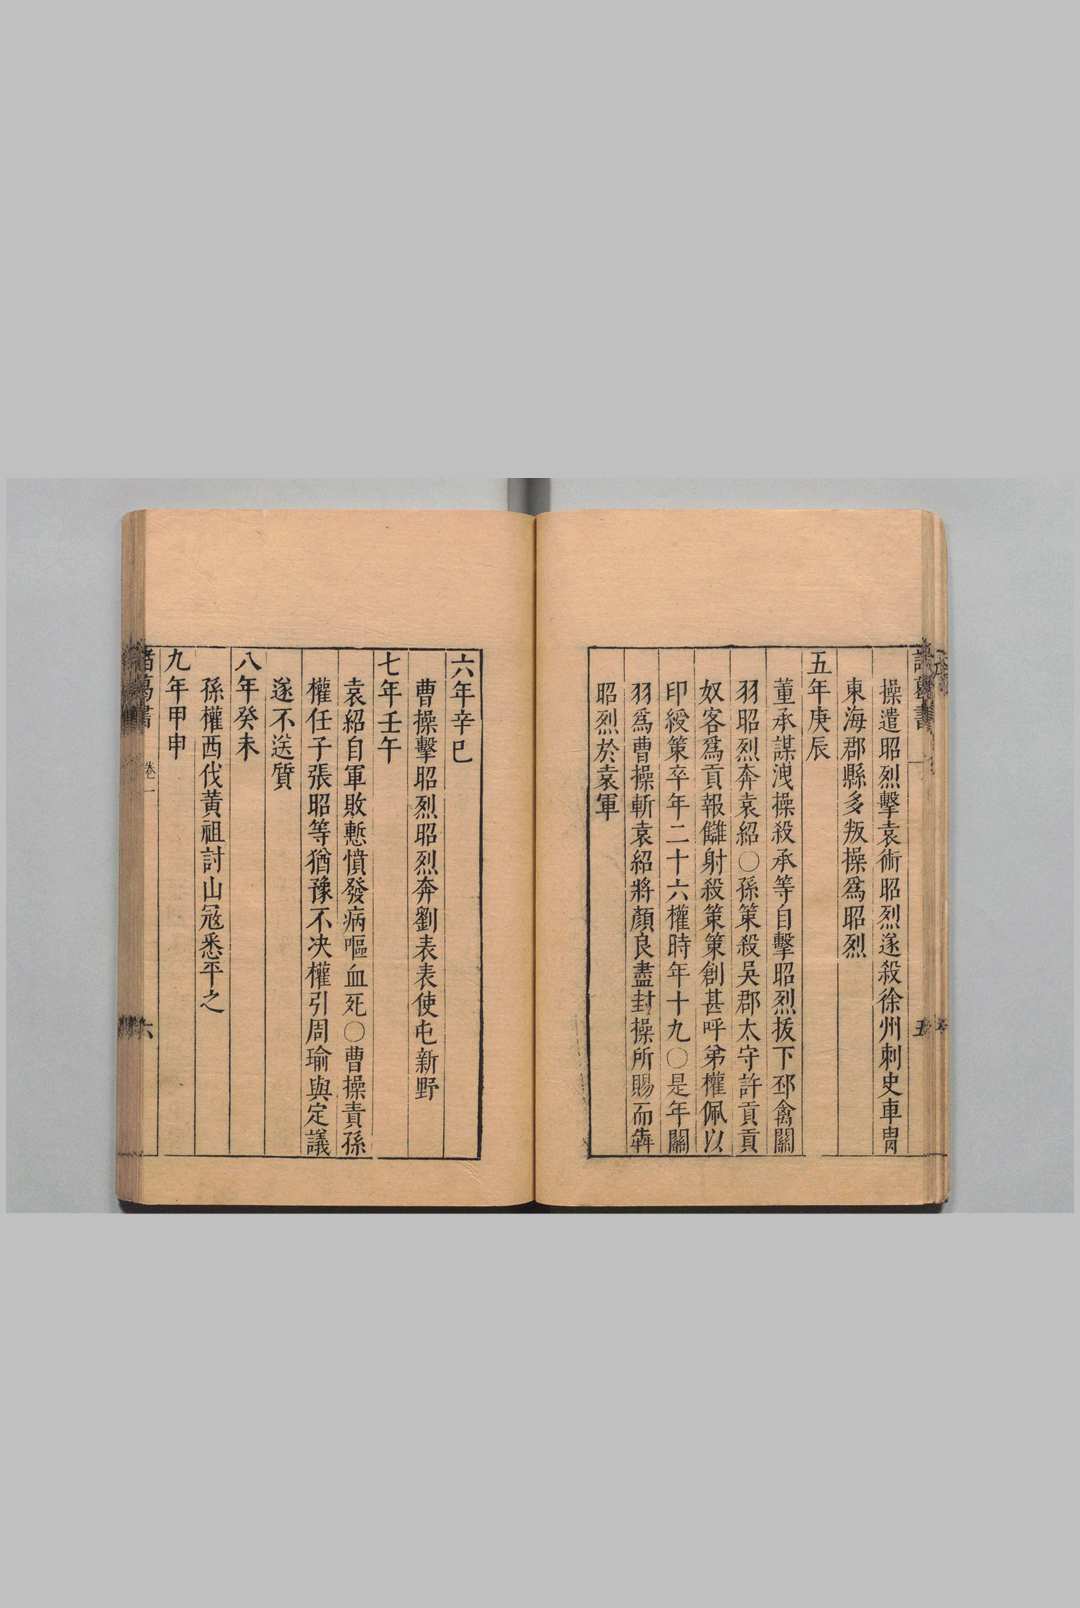 操遣昭烈擊袁術昭烈遂殺徐州刺史車冑
東海郡縣多叛操爲昭烈
五年庚辰
董承謀洩操殺承等自擊昭烈拔下邳禽關
羽昭烈奔袁紹〇孫策殺吳郡太守許貢貢
奴客爲貢報讎射殺策策創甚呼弟權佩以
印綬策卒年二十六權時年十九〇是年關
羽爲曹操斬袁紹將顏良盡封操所賜而犇
昭烈於袁軍
六年辛巳
曹操擊昭烈昭烈奔劉表表使屯新野
七年壬午
袁紹自軍敗慙憤發病嘔血死〇曹操責孫
權任子張昭等猶豫不决權引周瑜與定議
遂不送質
八年癸未
孫權西伐黃祖討山寇悉平之
九年甲申
諸葛書 卷一 六